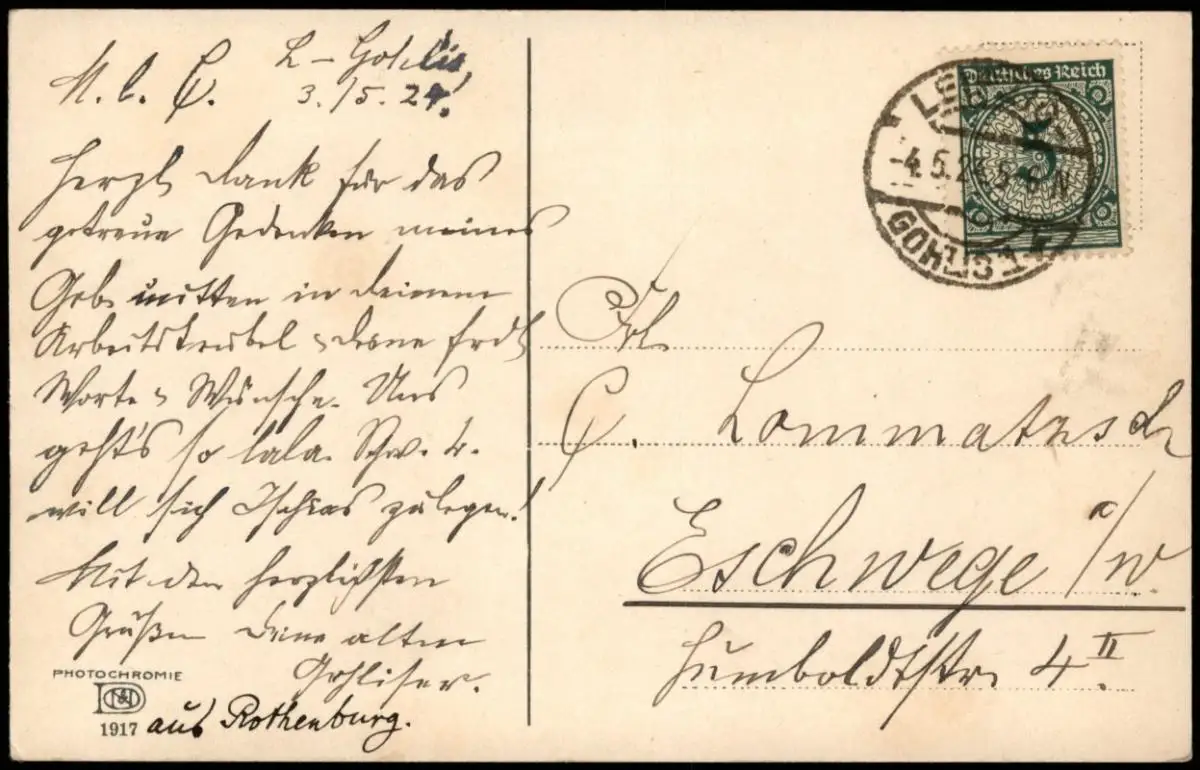 M. l. E. L-Gohlis,
3./5.24.
Herzl. Dank für das
getreue Gedenken meines
Geb. mitten in deinem
Arbeitstrubel & deine frdl.
Worte & Wünsche. Uns
geht's so lala. Schw. L.
will sich Ischias zulegen!
Mit den herzlichsten
Grüßen deine alten
Gohliser.
aus Rothenburg.
PHOTOCHROMIE
1917
Deutsches Reich
5
LEIPZIG
-4.5.24. 5-6 N
GOHLIS 1
Frl.
E. Lommatzsch
Eschwege a/W.
Humboldtstr. 4 II